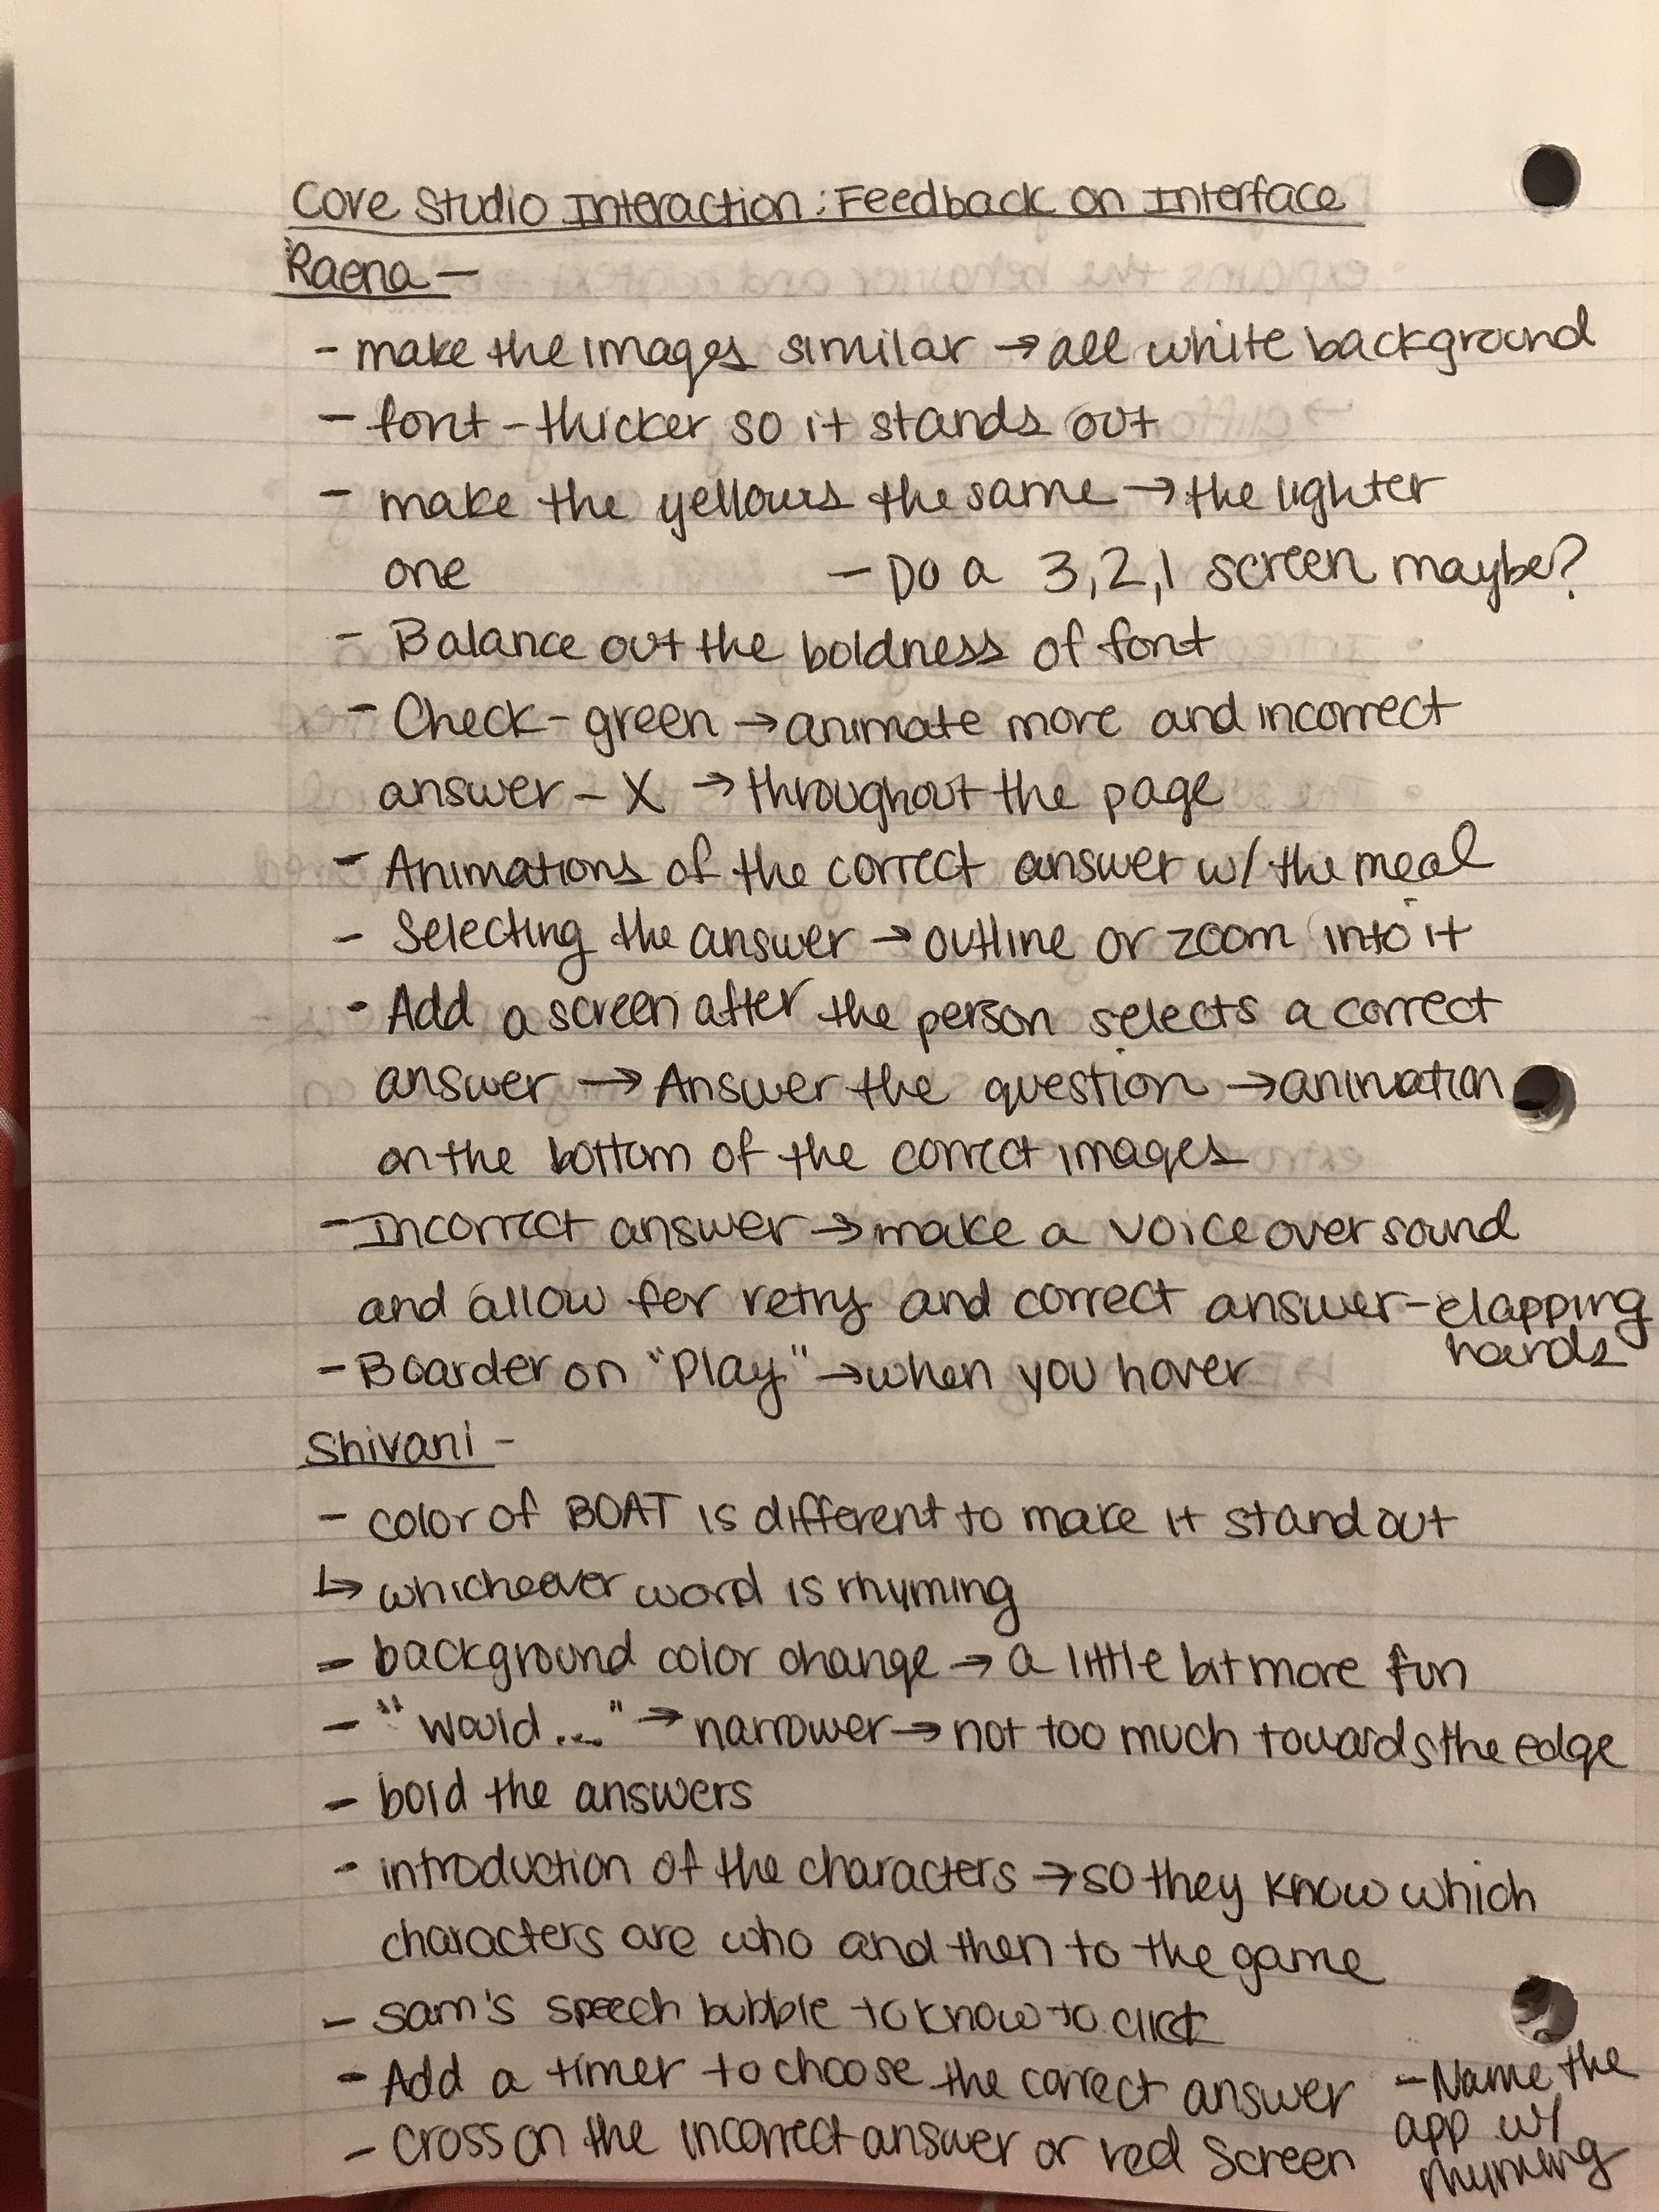 Core Studio Interaction: Feedback on Interface
Raena —
- make the images similar → all white background
- font - thicker so it stands out
- make the yellows the same → the lighter
one
- Do a 3,2,1 screen maybe?
- Balance out the boldness of font
- Check - green → animate more and incorrect
answer - X → throughout the page
- Animations of the correct answer w/ the meal
- Selecting the answer → outline or zoom into it
- Add a screen after the person selects a correct
answer → Answer the question → animation
on the bottom of the correct images
- Incorrect answer → make a voice over sound
and allow for retry and correct answer - clapping
hands
- Boarder on "Play" → when you hover
Shivani -
- color of BOAT is different to make it stand out
↳ whicheever word is rhyming
- background color change → a little bit more fun
- "would..." → narrower → not too much towards the edge
- bold the answers
- introduction of the characters → so they know which
characters are who and then to the game
- Sam's speech bubble to know to click
- Add a timer to choose the correct answer
- Cross on the incorrect answer or red screen
- Name the
app w/
rhyming